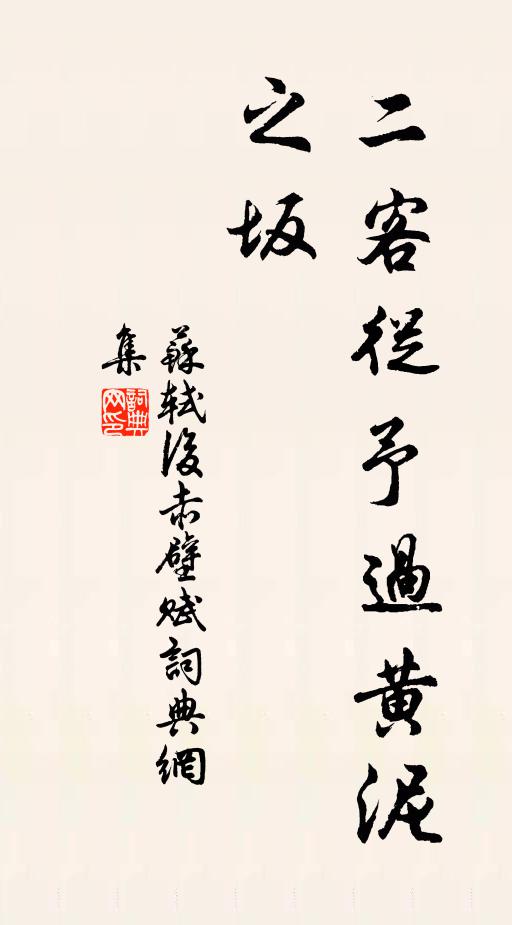 二客從予過黄泥
之坂
蘇軾後赤壁賦詞典網
集
詞典
网印